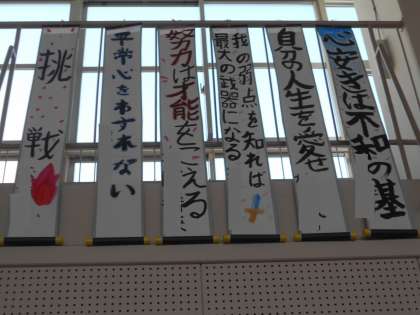 心安きは不和の基
自分の人生を愛せ
我の弱点を知れば
最大の武器になる
努力は才能をこえる
平常心をわすれない
挑戦